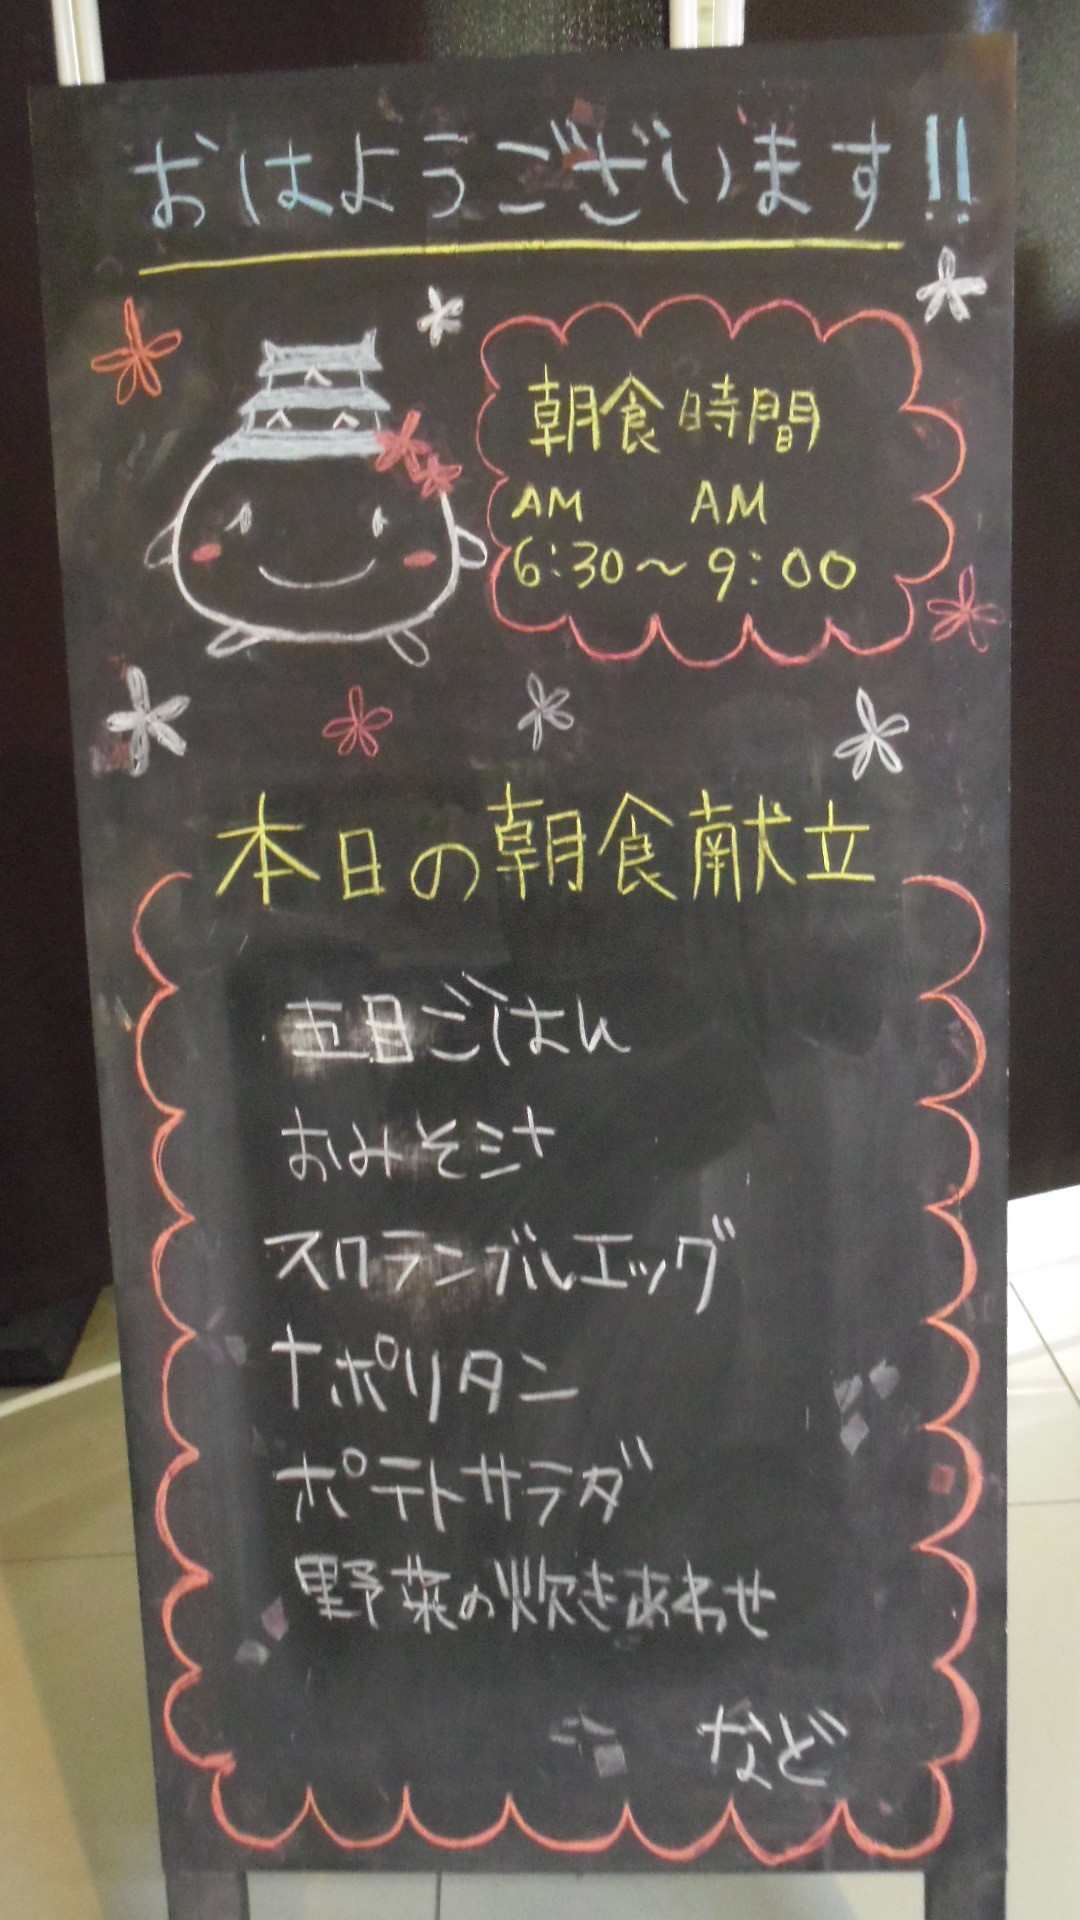 おはようございます!!
朝食時間
AM AM
6:30〜9:00
本日の朝食献立
五目ごはん
おみそ汁
スクランブルエッグ
ナポリタン
ポテトサラダ
野菜の炊きあわせ
など